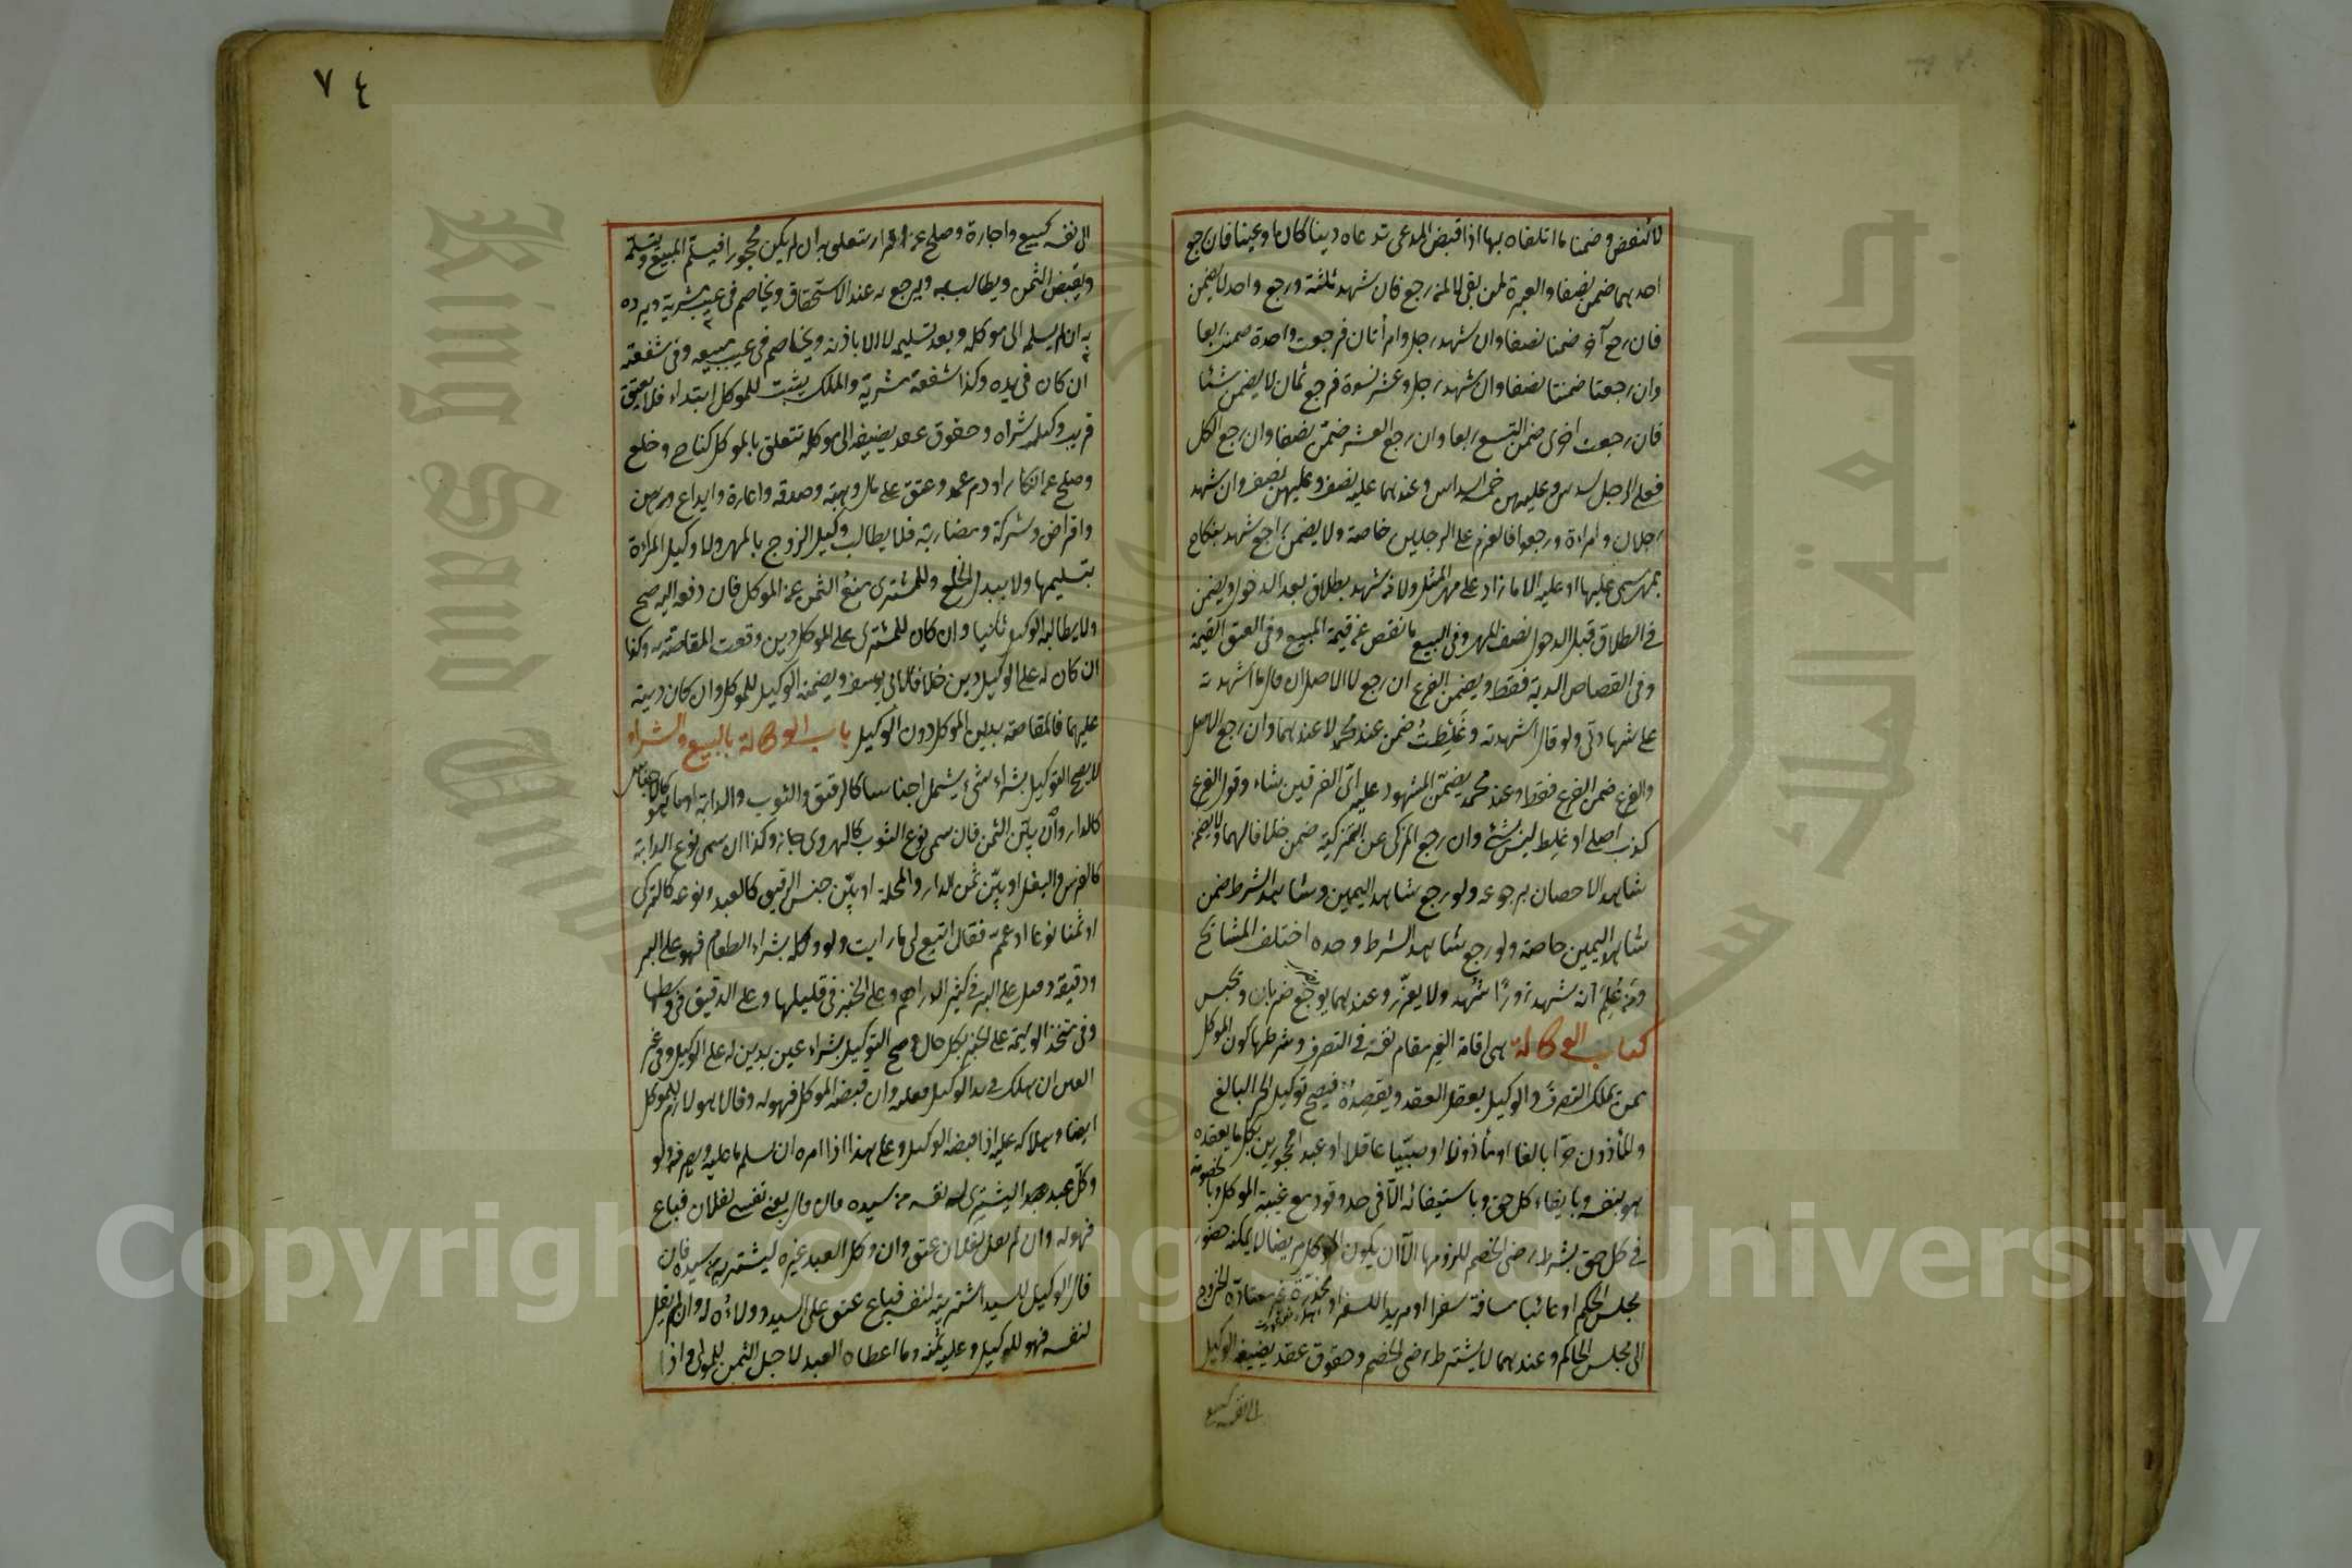 لا ينقض وضمنا ما اتلفاه بها اذا قبض المدعى مدعاه دينا كان او عينا فان رجع
احدهما ضمن نصفا والعبرة لمن بقى لا لمن رجع فان شهد ثلثة ورجع واحد لا يضمن
فان رجع آخر ضمنا نصفا وان شهد رجل وامرأتان فرجعت واحدة ضمنت ربعا
وان رجعتا ضمنتا نصفا وان شهد رجل وعشر نسوة فرجع ثمان لا يضمن شئا
فان رجعت اخرى ضمن التسع ربعا وان رجع العشر ضمن نصفا وان رجع الكل
فعلى الرجل سدس وعليهن خمسة اسداس وعندهما عليه نصف وعليهن نصف وان شهد
رجلان وامراءة ورجعوا فالغرم على الرجلين خاصة ولا يضمن راجع شهد بنكاح
بمهر مسمى عليها او عليه الا ما زاد على مهر المثل ولا من شهد بطلاق بعد الدخول ويضمن
فى الطلاق قبل الدخول نصف المهر وفى البيع ما نقص عن قيمة المبيع وفى العتق القيمة
وفى القصاص الدية فقط ويضمن الفرع ان رجع لا الاصل ان قال ما اشهدته
على شهادتى ولو قال اشهدته وغلطت ضمن عند محمد لا عندهما وان رجع الاصل
والفرع ضمن الفرع فقط وعند محمد يضمن المشهود عليه اىّ الفريقين شاء وقول الفرع
كذب اصلى او غلط ليس بشئ وان رجع المزكى عن التزكية ضمن خلافا لهما ولا يضمن
شاهد الاحصان برجوعه ولو رجع شاهد اليمين وشاهد الشرط ضمن
شاهد اليمين خاصة ولو رجع شاهد الشرط وحده اختلف المشايخ
ومن علم انه شهد زورا شهر ولا يعزر وعندهما يوجع ضربا ويحبس
كتاب الوكالة هى اقامة الغير مقام نفسه فى التصرف وشرطها كون الموكل
ممن يملك التصرف والوكيل يعقل العقد ويقصده فيصح توكيل الحر البالغ
والمأذون حرا بالغا او مأذونا او صبيا عاقلا او عبدا محجورين بكل ما يعقده
هو بنفسه وبايفاء كل حق وباستيفائه الا فى حد وقود مع غيبة الموكل وبالخصومة
فى كل حق بشرط رضى الخصم للزومها الا ان يكون الموكل مريضا لا يمكنه حضور
مجلس الحكم او غائبا مسافة سفرا او مريدا للسفر او مخدرة غير معتادة الخروج
الى مجلس الحاكم وعندهما لا يشترط رضى الخصم وحقوق عقد يضيفه الوكيل
الى نفسه كبيع
٧٤
الى نفسه كبيع واجارة وصلح عن اقرار يتعلق به ان لم يكن محجورا فيسلم المبيع ويتسلمه
ويقبض الثمن ويطالب به ويرجع به عند الاستحقاق ويخاصم فى عيب مشريه ويرده
به ان لم يسلمه الى موكله وبعد تسليمه لا الا باذنه ويخاصم فى عيب مبيعه وفى شفعته
ان كان فى يده وكذا شفعة مشريه والملك يثبت للموكل ابتداء فلا يعتق
قريب وكيله شراه وحقوق عقد يضيفه الى موكله تتعلق بالموكل كنكاح وخلع
وصلح عن انكار او دم عمد وعتق على مال وهبة وصدقة واعارة وايداع ورهن
واقراض وشركة ومضاربة فلا يطالب وكيل الزوج بالمهر ولا وكيل المراءة
بتسليمها ولا ببدل الخلع وللمشترى منع الثمن عن الموكل فان دفعه اليه صح
ولا يطالبه الوكيل ثانيا وان كان للمشترى على الموكل دين وقعت المقاصة به وكذا
ان كان له على الوكيل دين خلافا لابى يوسف ويضمنه الوكيل للموكل وان كان دينه
عليهما فالمقاصة بدين الموكل دون الوكيل باب الوكالة بالبيع والشراء
لا يصح التوكيل بشراء شئ يشمل اجناسا كالرقيق والثوب والدابة او ما هو كالاجناس
كالدار وان بيّن الثمن فان سمى نوع الثوب كالهروى جاز وكذا ان سمى نوع الدابة
كالفرس والبغل او بيّن ثمن الدار والمحلة او بيّن جنس الرقيق كالعبد ونوعه كالتركى
او ثمنا نوعا او عمم فقال ابتع لى ما رايت ولو وكله بشراء الطعام فهو على البر
ودقيقه وقيل على البر فى كثير الدراهم وعلى الخبز فى قليلها وعلى الدقيق فى وسطها
وفى متخذ الوليمة على الخبز بكل حال وصح التوكيل بشراء عين بدين له على الوكيل وفى غير
العين ان هلك فى يد الوكيل فعليه وان قبضه الموكل فهو له وقالا هو لازم للموكل
ايضا وهلاكه عليه اذا قبضه الوكيل وعلى هذا اذا امره ان يسلم ما عليه او يصرفه ولو
وكّل عبدا ليشترى له نفسه من سيده فان قال بعنى نفسى لفلان فباع
فهو له وان لم يقل لفلان عتق وان وكل العبد غيره ليشتريه من سيده فان
قال الوكيل للسيد اشتريته لنفسه فباع عتق على السيد وولاؤه له وان لم يقل
لنفسه فهو للوكيل وعليه ثمنه وما اعطاه العبد لاجل الثمن للمولى واذا
King Saud University
جامعة الملك سعود
Copyright © King Saud University